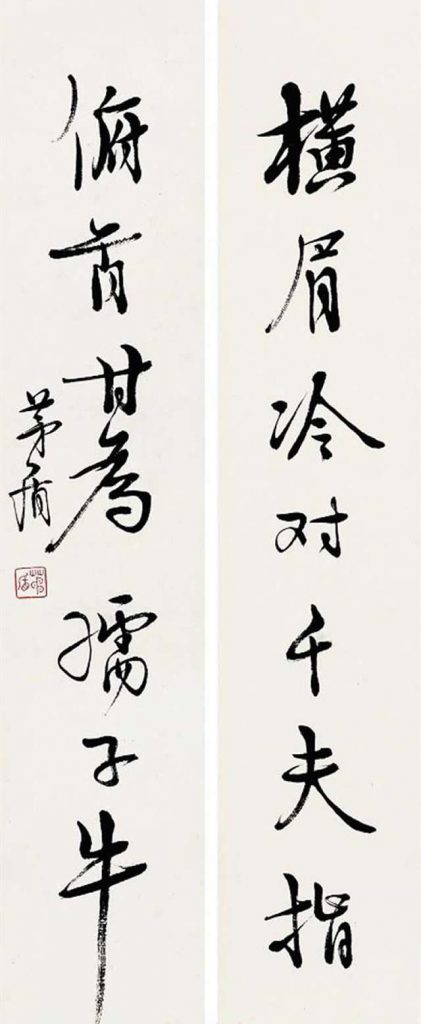 横眉冷对千夫指
俯首甘為孺子牛
茅盾
茅盾